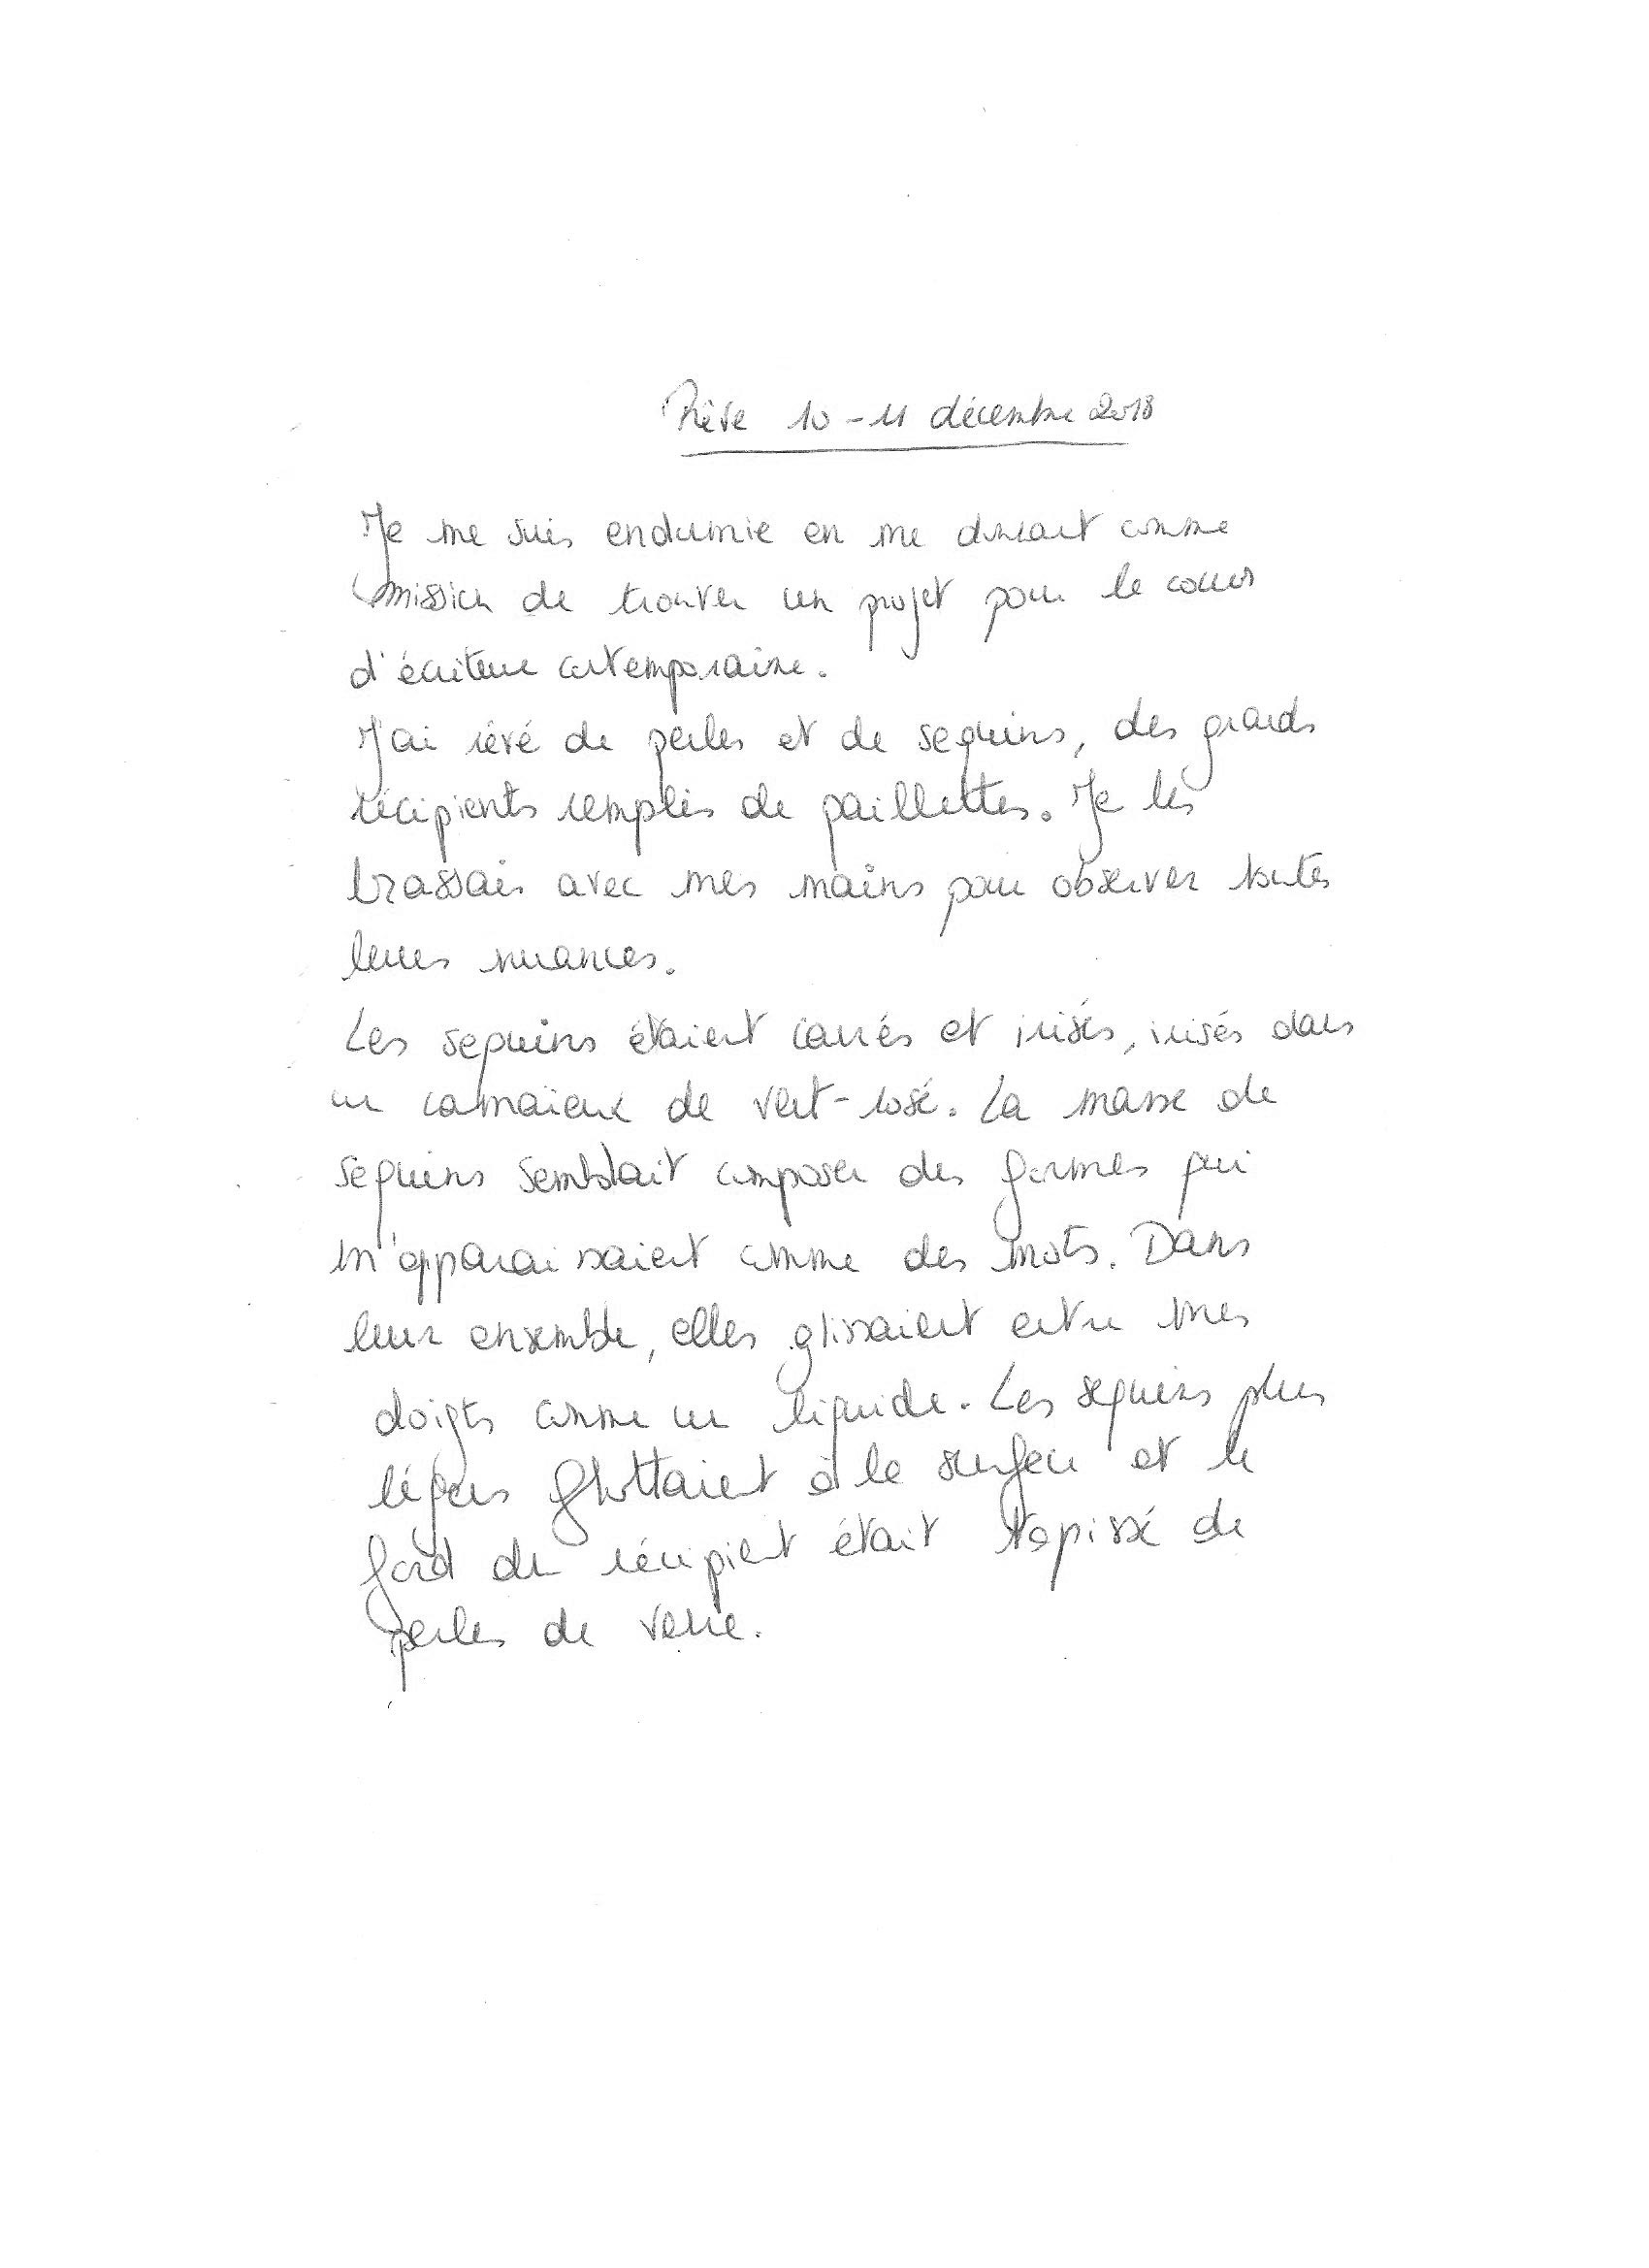 Rêve 10-11 décembre 2018
Je me suis endormie en me donnant comme
mission de trouver un projet pour le cours
d'écriture contemporaine.
J'ai rêvé de perles et de sequins, des grands
récipients remplis de paillettes. Je les
brassais avec mes mains pour observer toutes
leurs nuances.
Les sequins étaient carrés et irisés, irisés dans
un camaïeux de vert-rosé. La masse de
sequins semblait composer des formes qui
m'apparaissaient comme des mots. Dans
leur ensemble, elles glissaient entre mes
doigts comme un liquide. Les sequins plus
légers flottaient à la surface et le
fond du récipient était tapissé de
perles de verre.